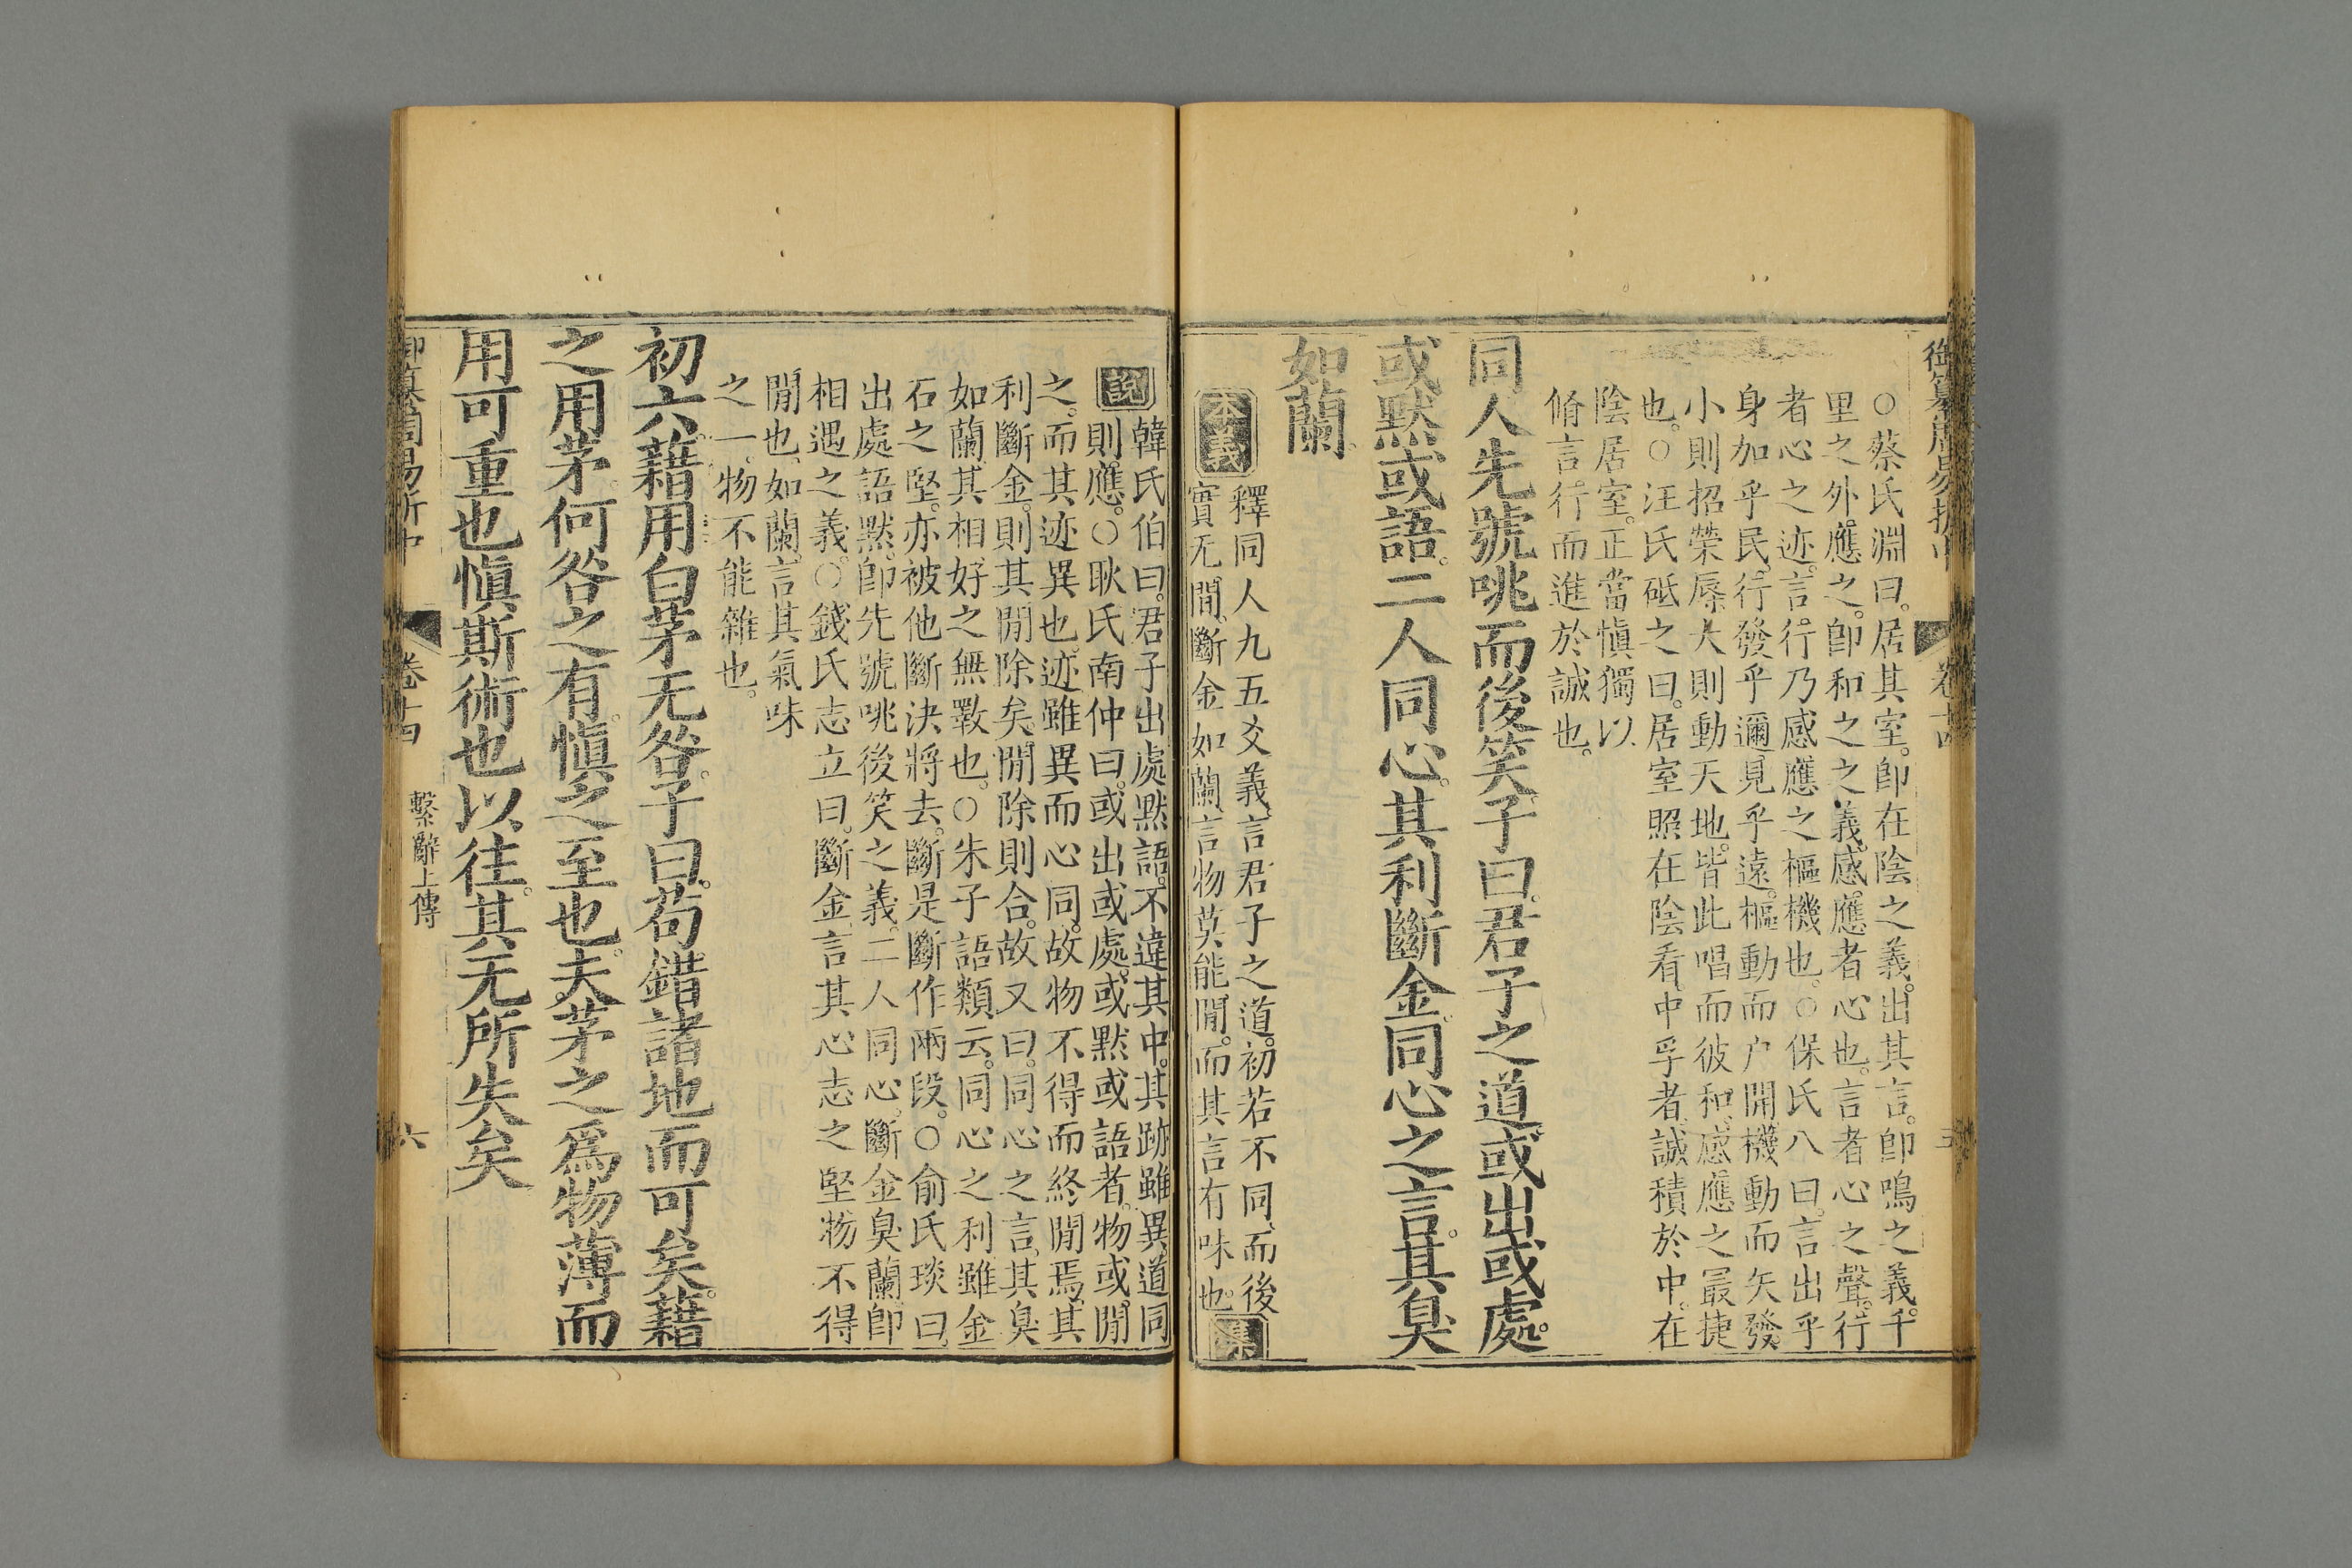 御纂周易折中 卷十四 五
○蔡氏淵曰。居其室。卽在陰之義。出其言。卽鳴之義。千
里之外應之。卽和之之義。感應者心也。言者心之聲。行
者心之迹。言行乃感應之樞機也。○保氏八曰。言出乎
身加乎民。行發乎邇見乎遠。樞動而户開。機動而矢發。
小則招榮辱。大則動天地。皆此唱而彼和。感應之最捷
也。○汪氏砥之曰。居室照在陰看。中孚者。誠積於中。在
陰居室。正當愼獨以
脩言行而進於誠也。
同人先號咷而後笑。子曰。君子之道。或出或處。
或默或語。二人同心。其利斷金。同心之言。其臭
如蘭。
本義
釋同人九五爻義。言君子之道。初若不同。而後
實无間。斷金如蘭。言物莫能閒。而其言有味也。
集
說
韓氏伯曰。君子出處默語。不違其中。其跡雖異。道同
則應。○耿氏南仲曰。或出或處。或默或語者。物或閒
之。而其迹異也。迹雖異而心同。故物不得而終閒焉。其
利斷金。則其閒除矣。閒除則合。故又曰。同心之言。其臭
如蘭。其相好之無斁也。○朱子語類云。同心之利。雖金
石之堅。亦被他斷決將去。斷是斷作兩段。○俞氏琰曰。
出處語默。卽先號咷後笑之義。二人同心。斷金臭蘭。卽
相遇之義。○錢氏志立曰。斷金。言其心志之堅。物不得
閒也。如蘭。言其氣味
之一。物不能雜也。
初六。藉用白茅。无咎。子曰。苟錯諸地而可矣。藉
之用茅。何咎之有。愼之至也。夫茅之爲物薄。而
用可重也。愼斯術也以往。其无所失矣
御纂周易折中 卷十四 繫辭上傳 六